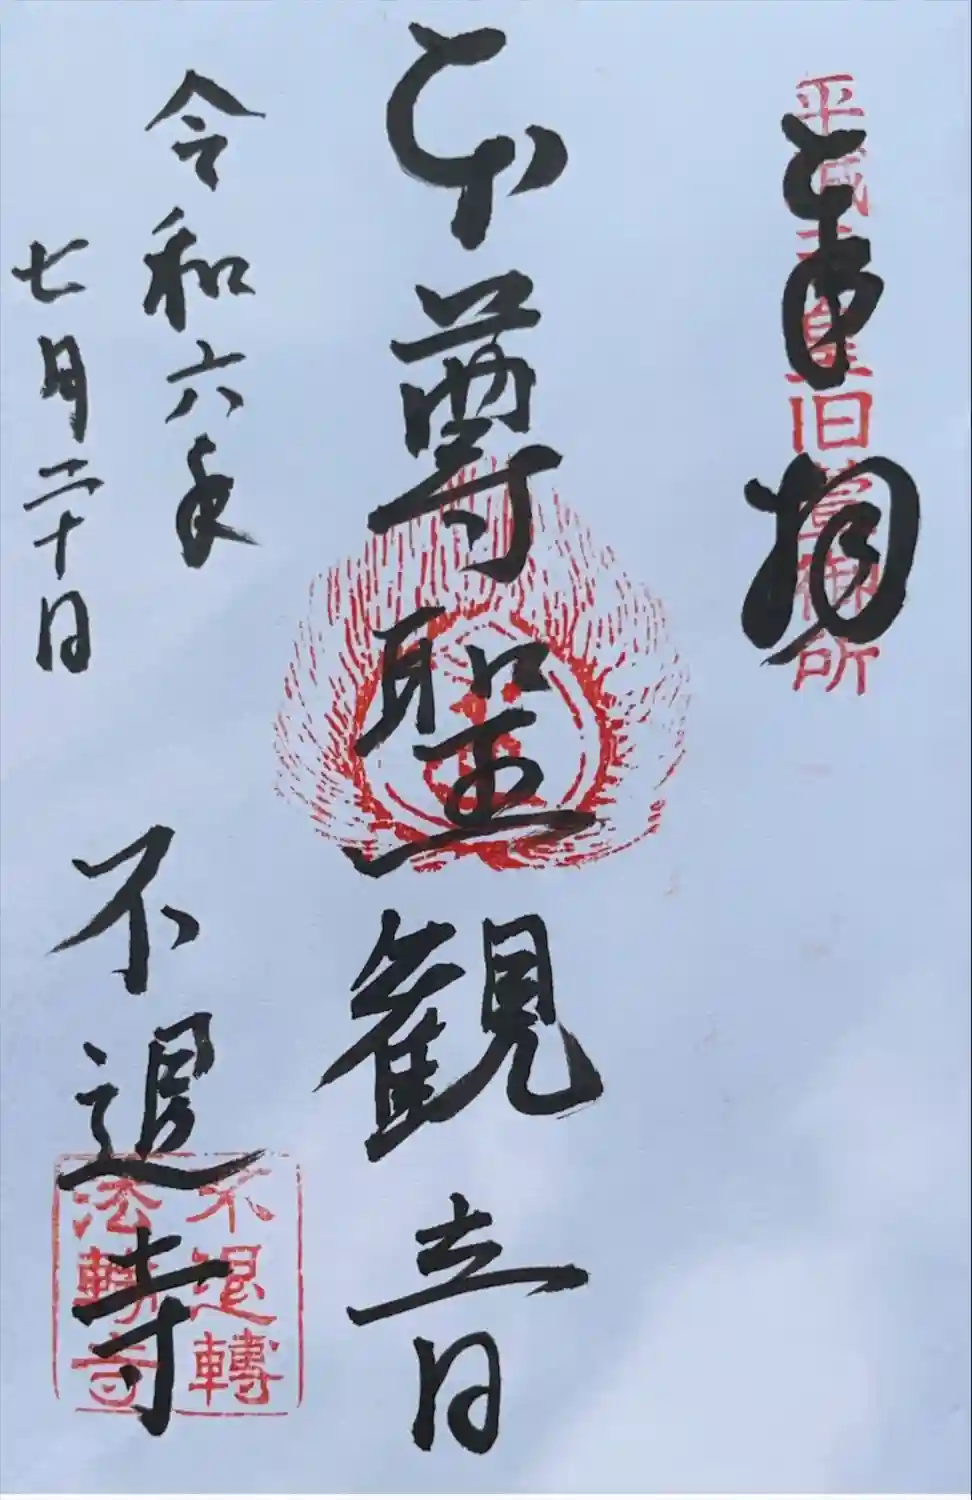 奉拝
平城天皇旧萱御所
本尊聖観音
令和六年
七月二十日
不退寺
不退轉
法轉寺